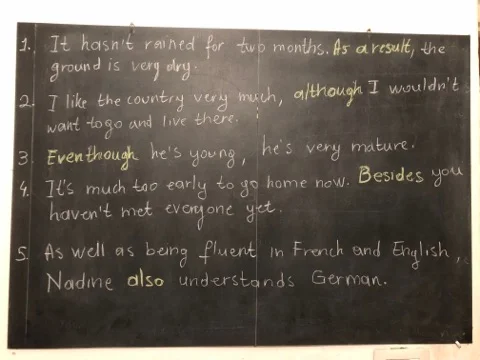 1. It hasn't rained for two months. As a result, the
ground is very dry.
2. I like the country very much, although I wouldn't
want to go and live there.
3. Eventhough he's young, he's very mature.
4. It's much too early to go home now. Besides you
haven't met everyone yet.
5. As well as being fluent in French and English,
Nadine also understands German.